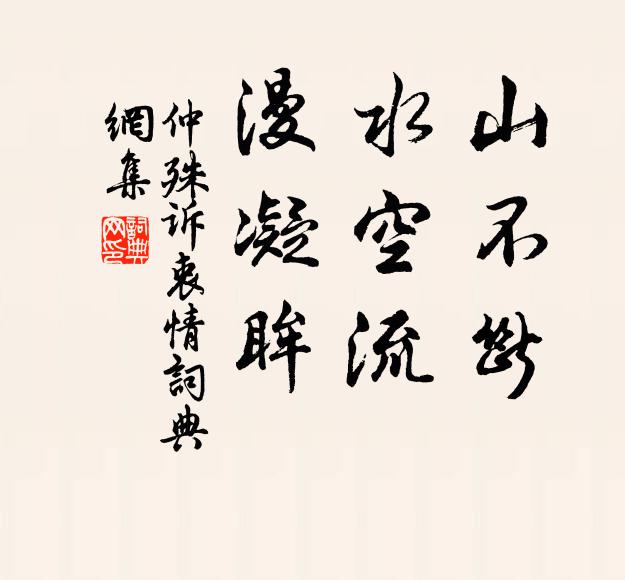 山不斷
水空流
漫凝眸
仲殊訴衷情詞典
網集
詞典
网印